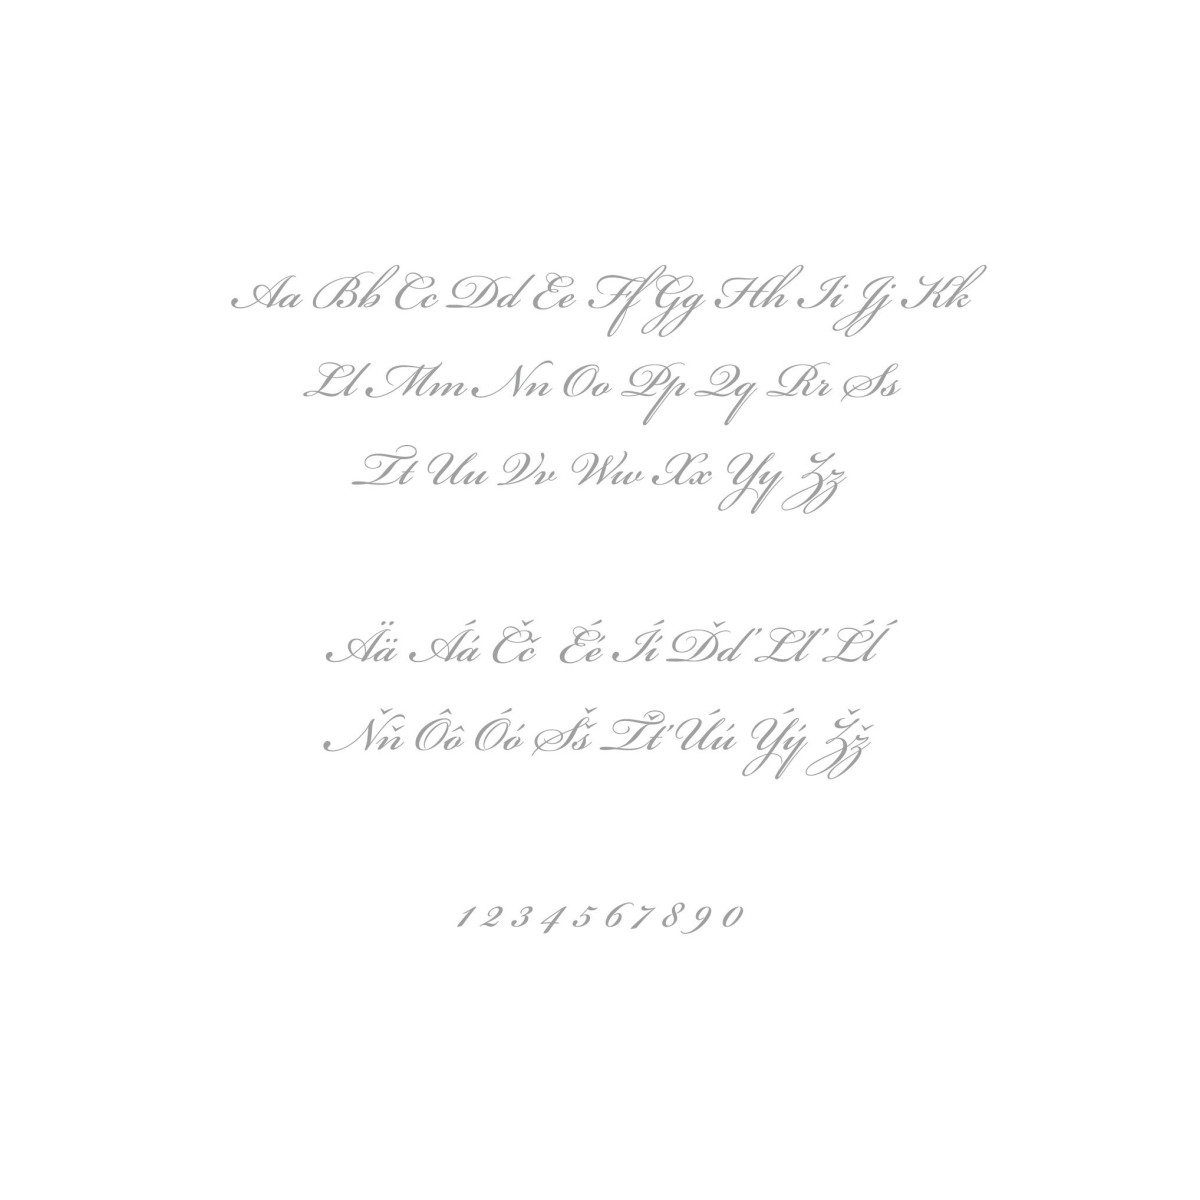 Aa Bb Cc Dd Ee Ff Gg Hh Ii Jj Kk
Ll Mm Nn Oo Pp Qq Rr Ss
Tt Uu Vv Ww Xx Yy Zz
Ää Áá Čč Éé Íí Ďď Ľľ Ĺĺ
Ňň Ôô Óó Šš Ťť Úú Ýý Žž
1 2 3 4 5 6 7 8 9 0